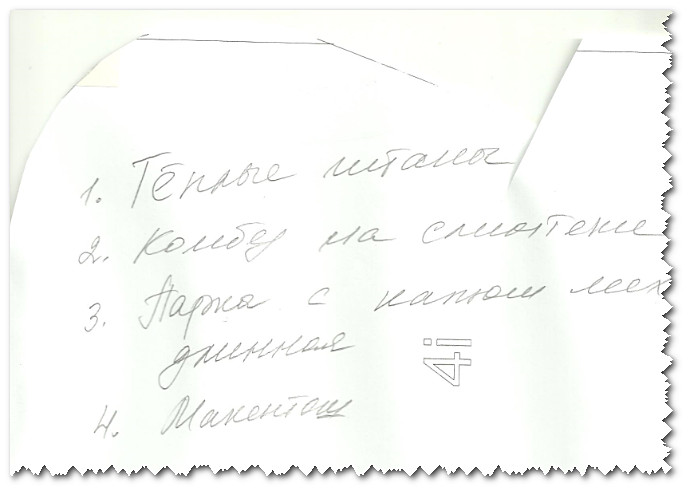 1. Тёплые штаны
2. Комбез на синтепоне
3. Парка с капюш мех
длинная
4i
4. Макентош